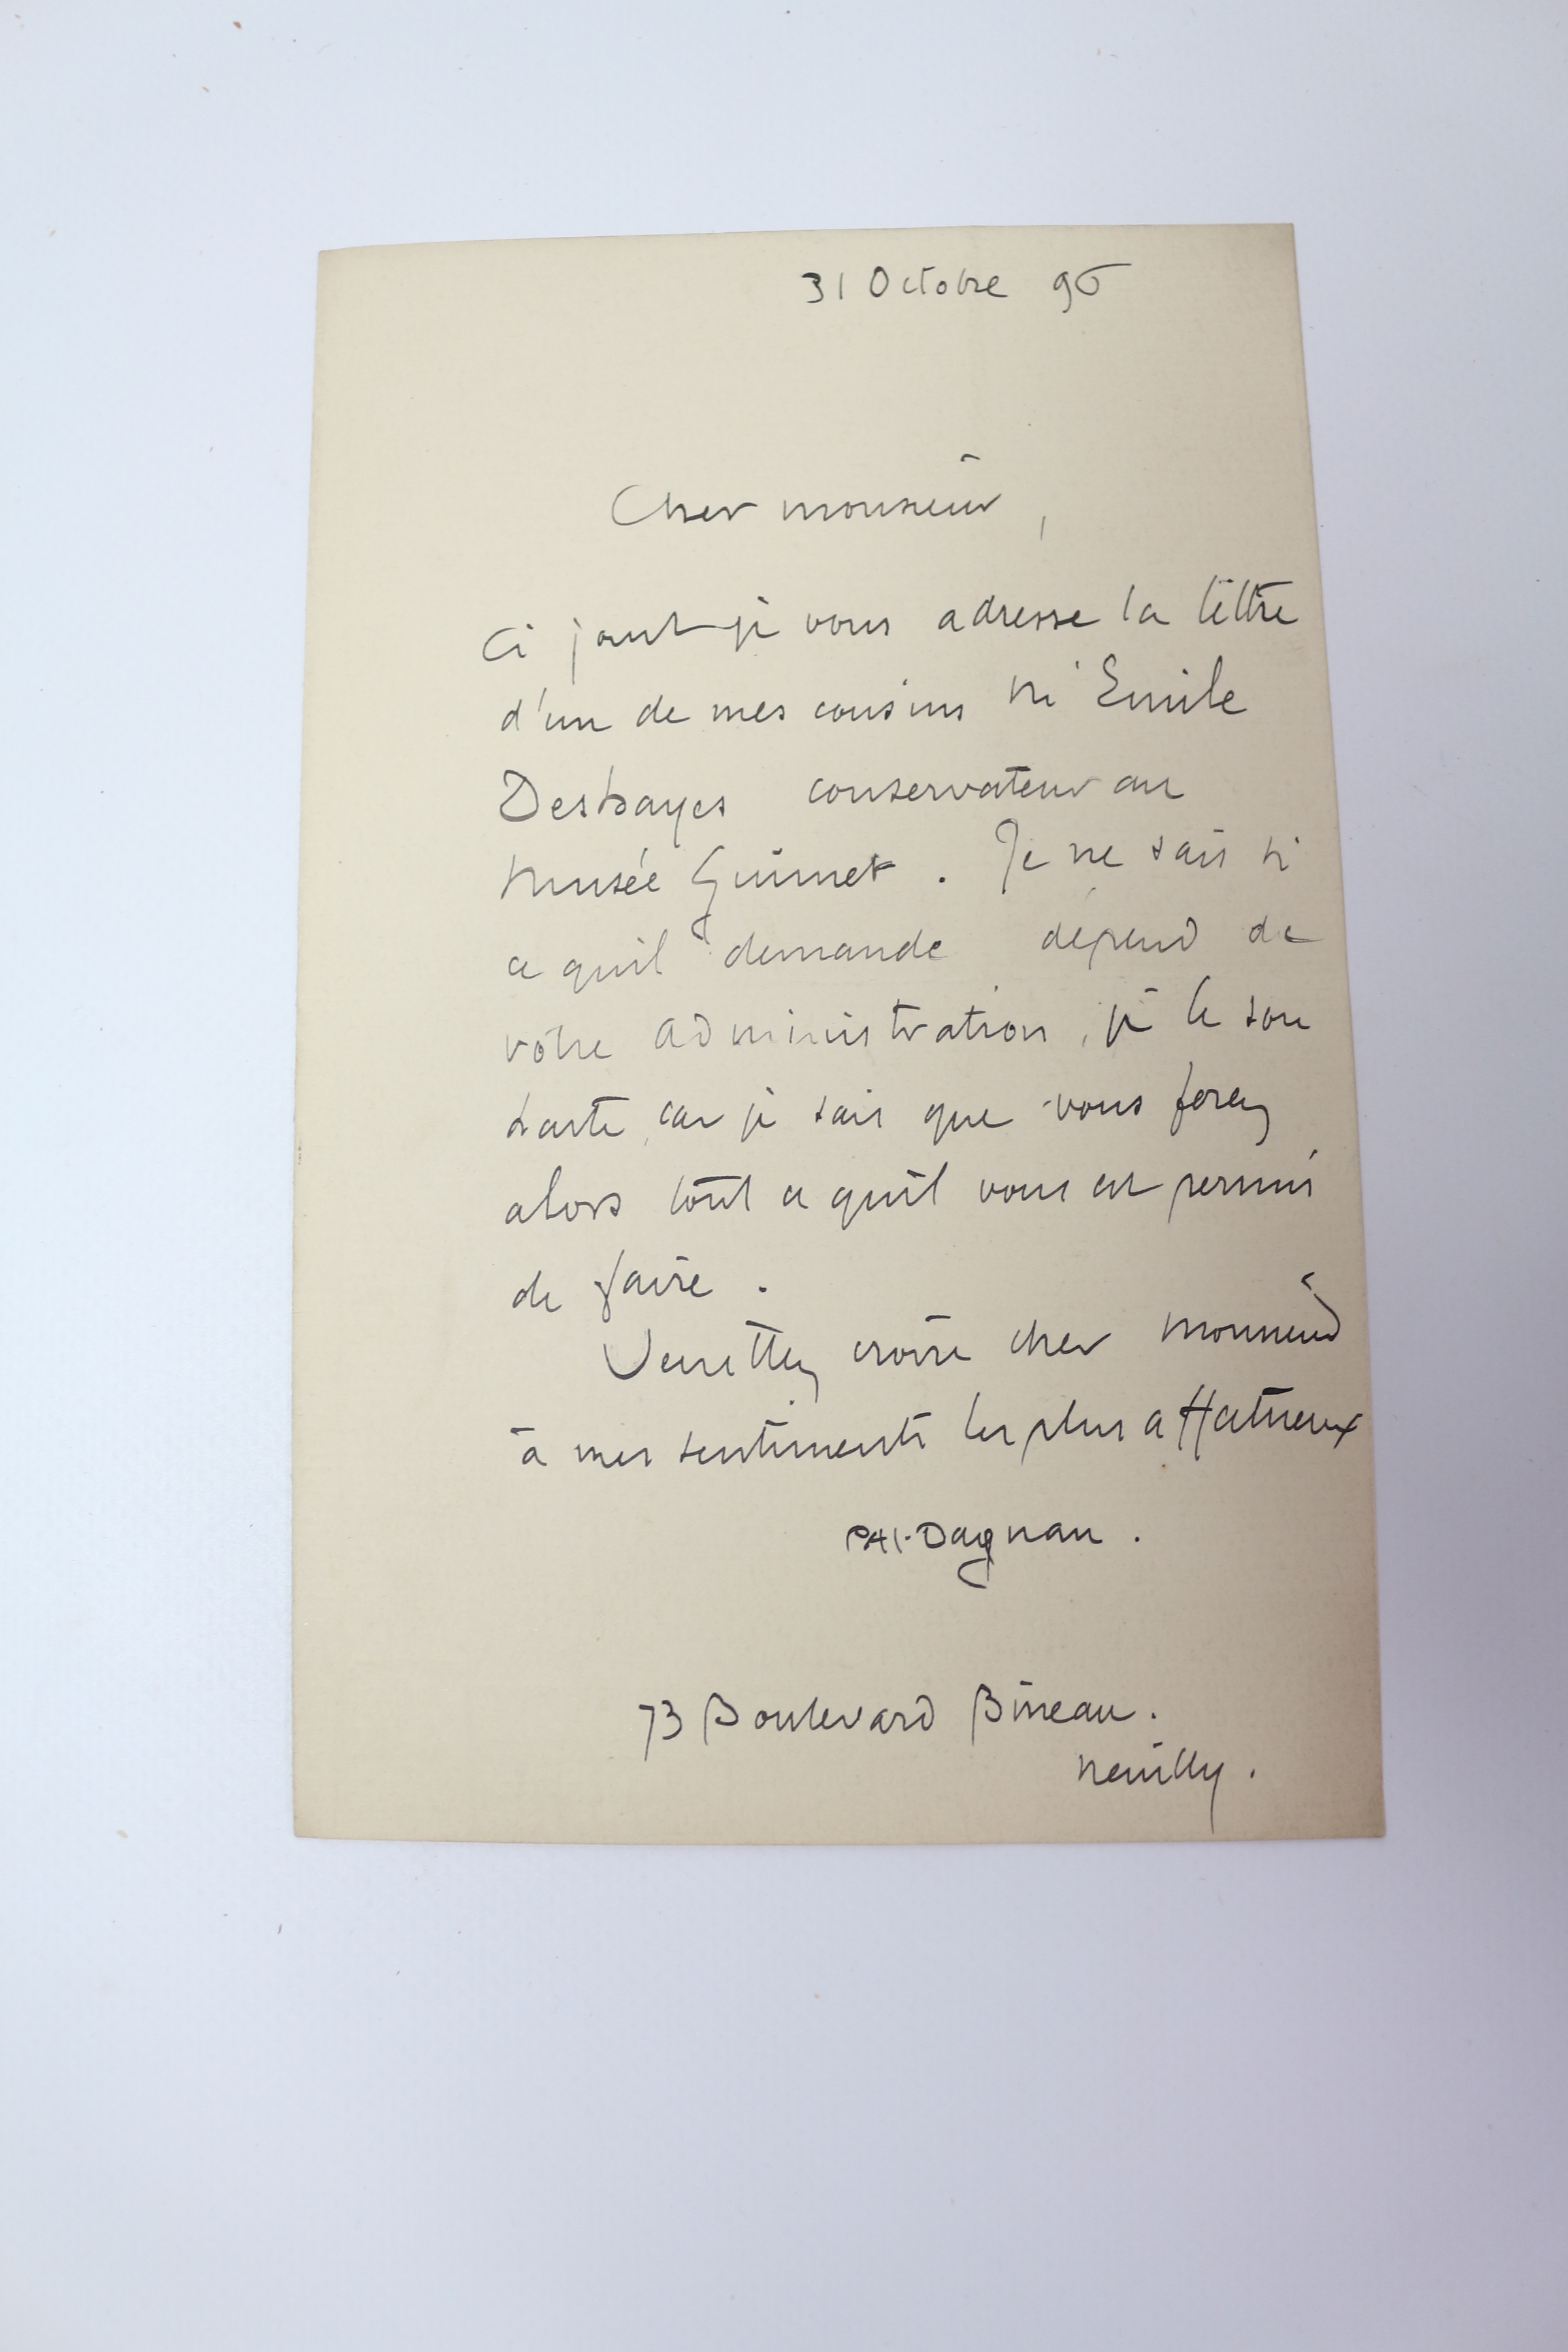 31 Octobre 96
Cher monsieur,
Ci joint je vous adresse la lettre
d'un de mes cousins Mr Emile
Deshayes conservateur au
Musée Guimet. Je ne sais si
ce qu'il demande dépend de
votre administration, je le sou
haite, car je sais que vous ferez
alors tout ce qu'il vous est permis
de faire.
Veuillez croire cher monsieur
à mes sentiments les plus affectueux
PAJ-Dagnan.
73 Boulevard Bineau.
Neuilly.